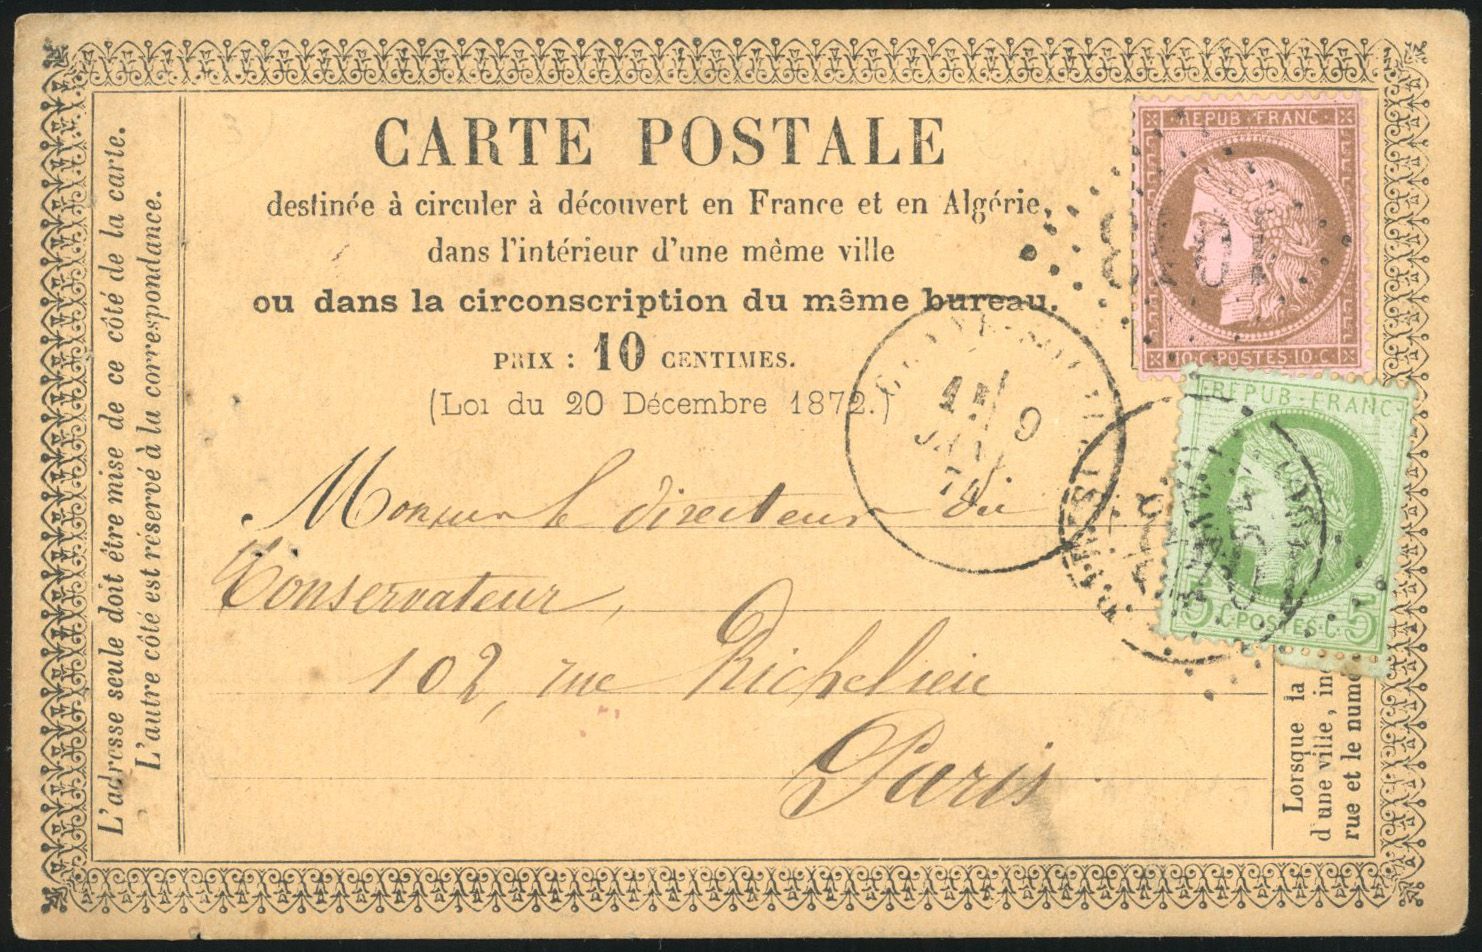 CARTE POSTALE
destinée à circuler à découvert en France et en Algérie,
dans l'intérieur d'une même ville
ou dans la circonscription du même bureau.
PRIX : 10 CENTIMES.
(Loi du 20 Décembre 1872.)
Monsieur le directeur du
Conservateur,
102, rue Richelieu
Paris
L'adresse seule doit être mise de ce côté de la carte.
L'autre côté est réservé à la correspondance.
REPUB·FRANC·
10·C·POSTES·10·C·
REPUB·FRANC·
5·C·POSTES·C·5
9
JANV
74
Lorsque la
d'une ville, in
rue et le numé